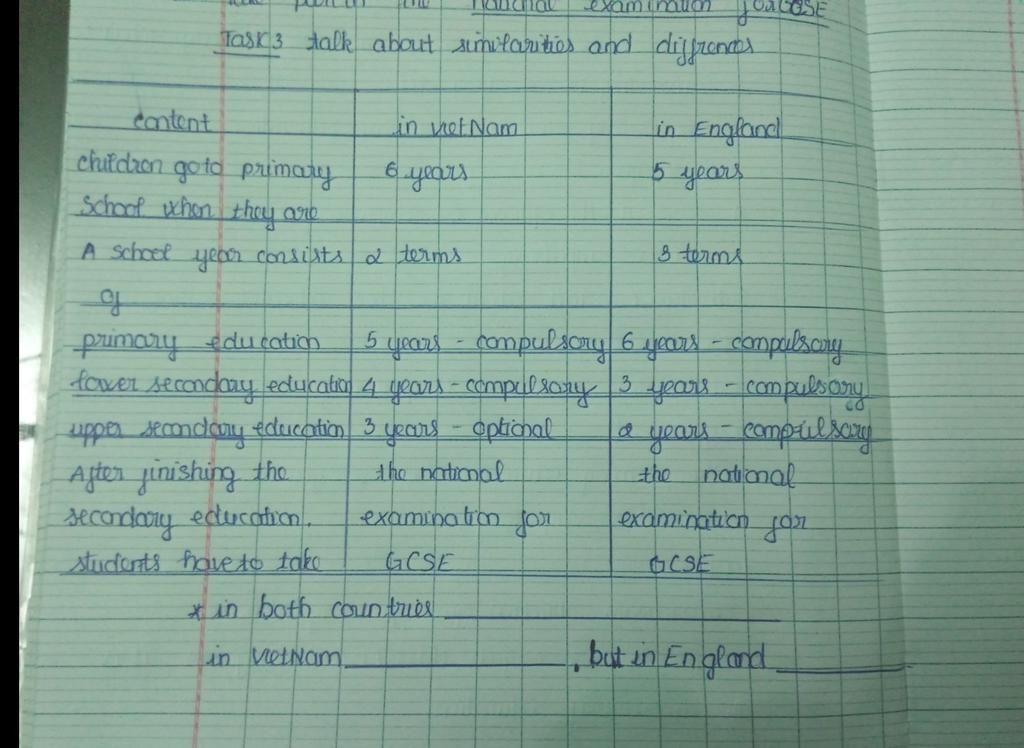 the national examination for GCSE
Task 3 talk about similarities and diffrences
content in vietNam in England
children go to primary 6 years 5 years
school when they are
A school year consists 2 terms 3 terms
of
primary education 5 years - compulsory 6 years - compulsory
lower secondary education 4 years - compulsory 3 years - compulsory
upper secondary education 3 years - optional 2 years - compulsory
After finishing the the national the national
secondary education. examination for examination for
students have to take GCSE GCSE
* in both countries
in vietNam , but in England